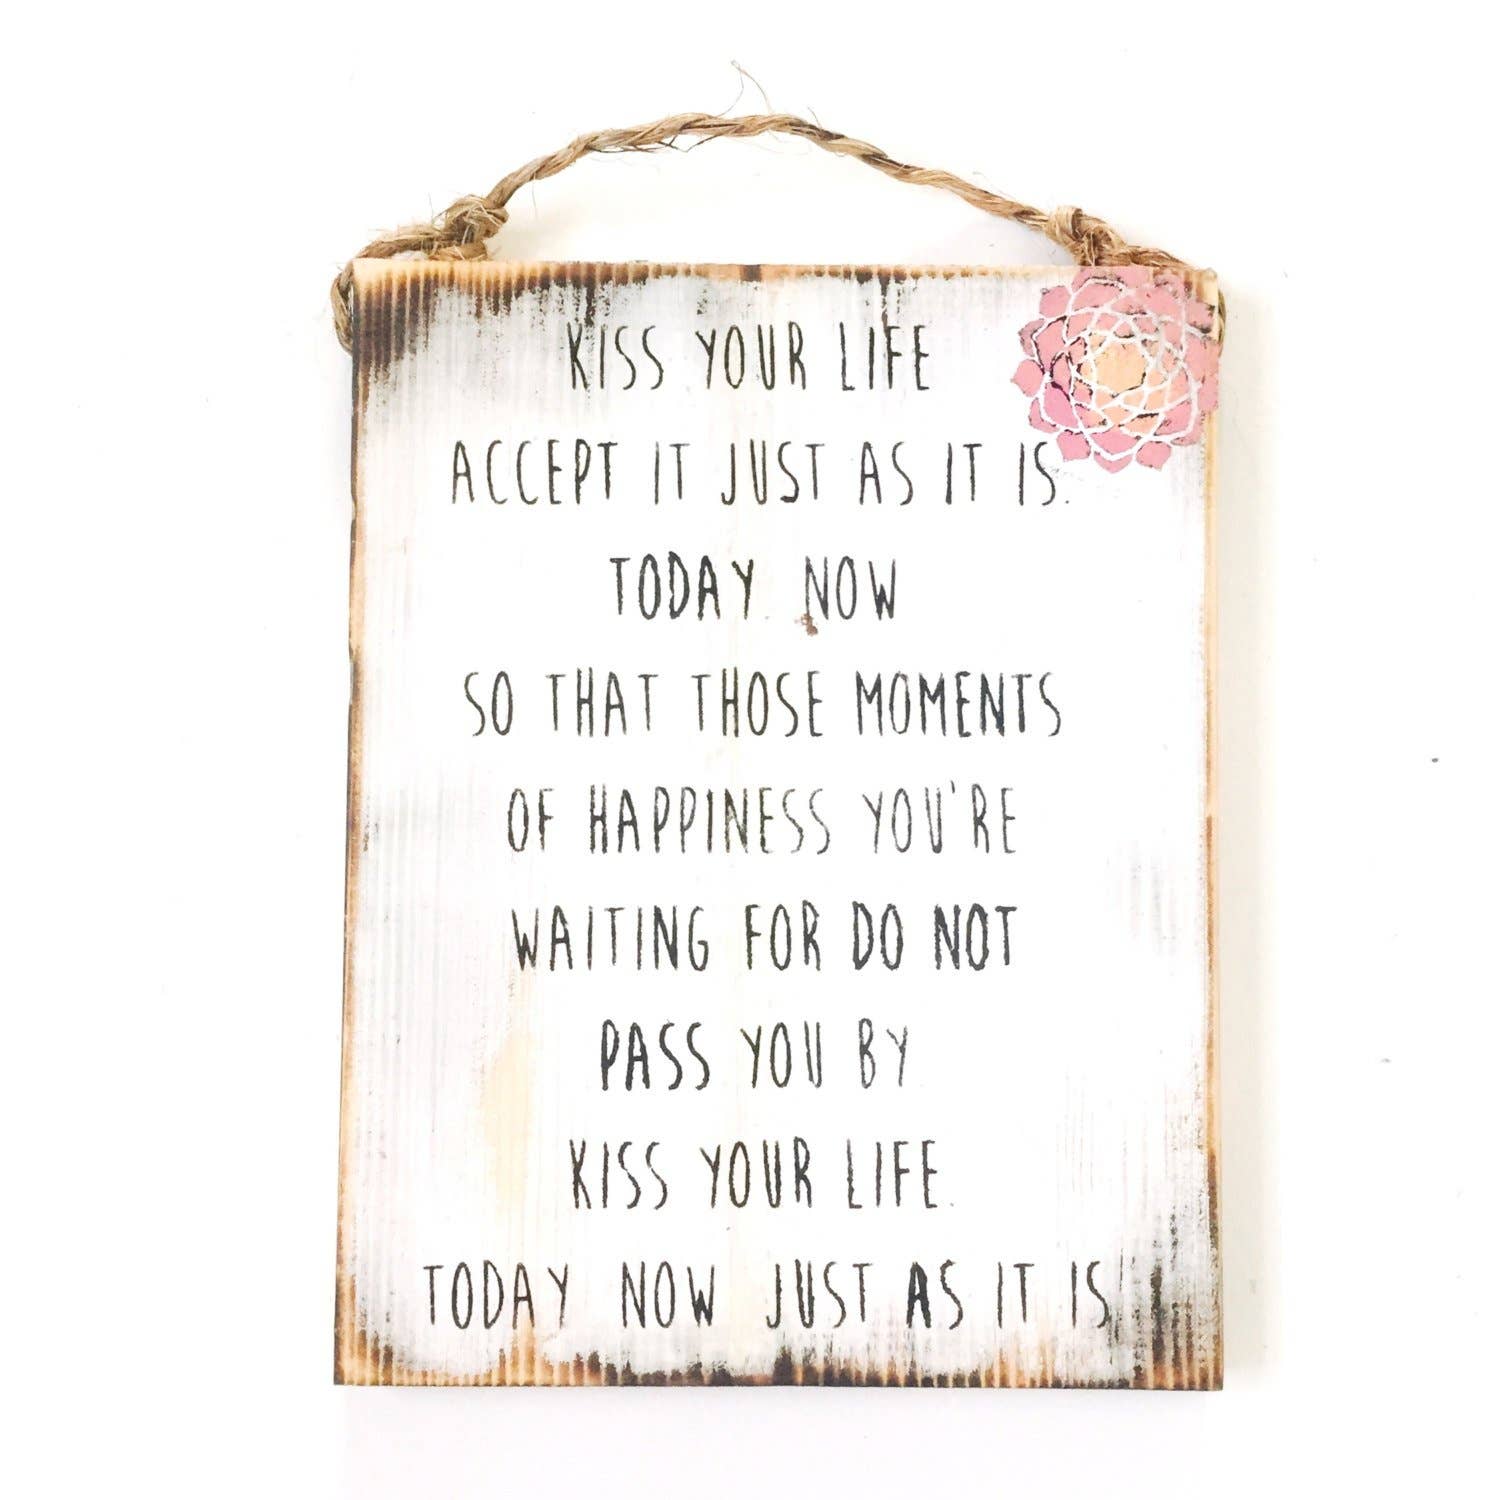 KISS YOUR LIFE
ACCEPT IT JUST AS IT IS.
TODAY. NOW
SO THAT THOSE MOMENTS
OF HAPPINESS YOU'RE
WAITING FOR DO NOT
PASS YOU BY.
KISS YOUR LIFE.
TODAY NOW JUST AS IT IS!